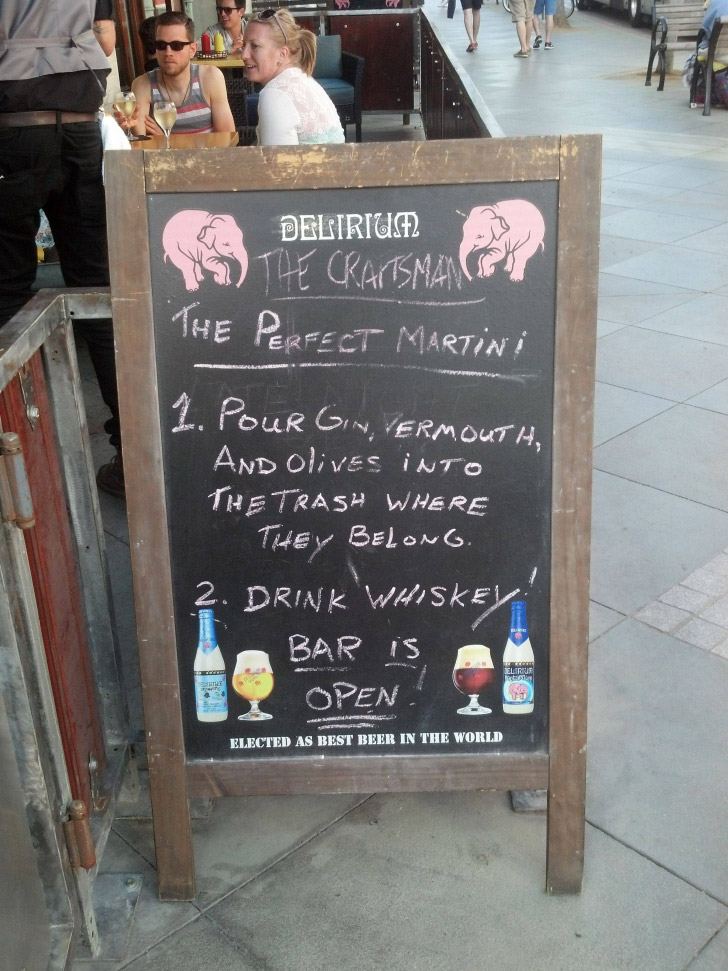 DELIRIUM
THE CRAFTSMAN
THE PERFECT MARTINI
1. POUR GIN, VERMOUTH,
AND OLIVES INTO
THE TRASH WHERE
THEY BELONG.
2. DRINK WHISKEY!
BAR IS
OPEN!
DELIRIUM
DELIRIUM
ELECTED AS BEST BEER IN THE WORLD